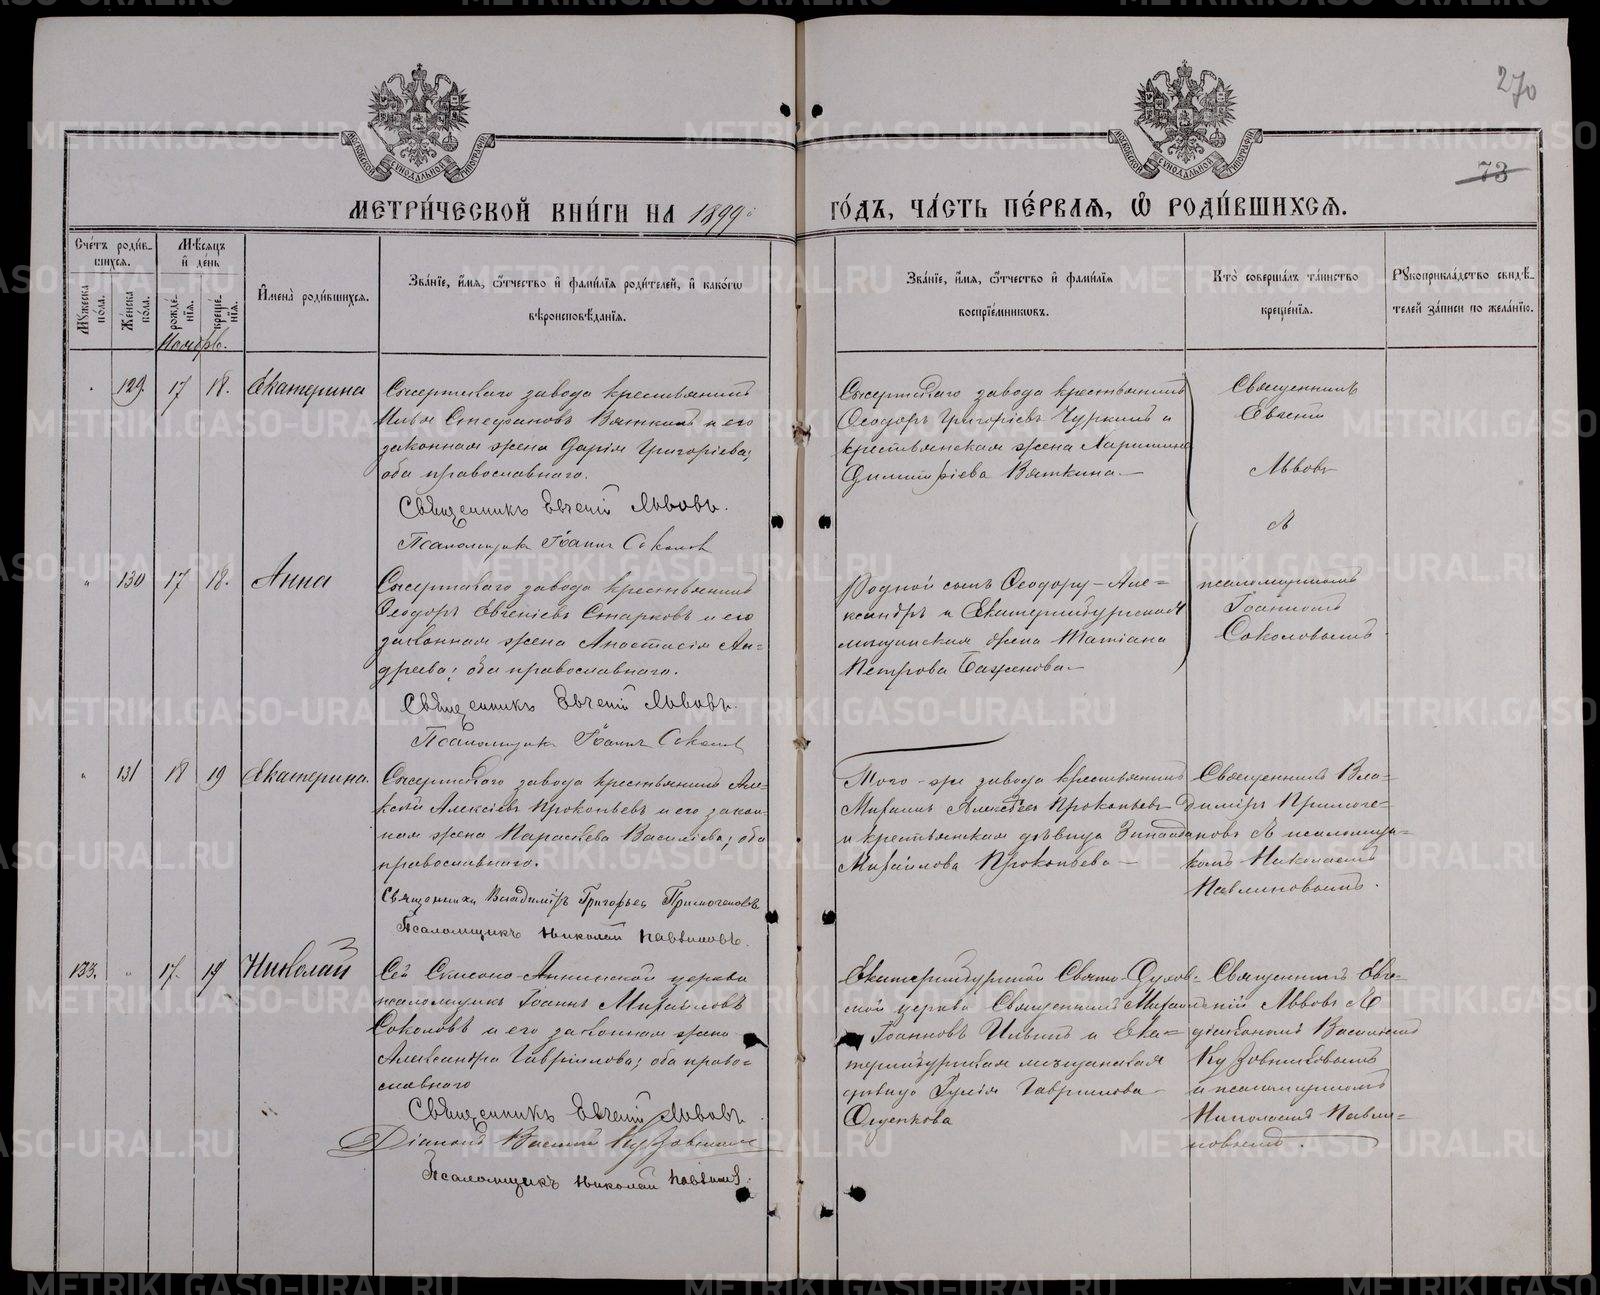 270
73
МОСКОВСКОЙ СѴНОДАЛЬНОЙ ТИПОГРАФІИ
МОСКОВСКОЙ СѴНОДАЛЬНОЙ ТИПОГРАФІИ
МЕТРИ́ЧЕСКОЙ КНИ́ГИ НА 1899й
ГО́ДЪ, ЧА́СТЬ ПЕ́РВАЯ, Ѡ РОДИ́ВШИХСЯ.
Сче́тъ роди́в-
шихся.
Му́жеска по́ла.
Же́нска по́ла.
Мѣ́сяцъ
и҆ де́нь
рожде́нїя.
креще́нїя.
И҆мена̀ роди́вшихся.
Зва́нїе, и҆́мя, ѻ҆́тчество и҆ фами́лїя роди́телей, и҆ како́гѡ
вѣроисповѣ́данїя.
Зва́нїе, и҆́мя, ѻ҆́тчество и҆ фами́лїя
воспрїе́мниковъ.
Кто̀ соверша́лъ та́инство
креще́нїя.
Рꙋкоприкла́дство свидѣ́-
телей за́писи по жела́нїю.
Ноябрь.
129. 17 18. Екатерина
Сысертскаго завода крестьянинъ
Илья Стефановъ Вяткинъ и его
законная жена Дарія Григоріева;
оба православнаго.
Священникъ Евгеній Львовъ.
Псаломщикъ Іоаннъ Соколовъ
Сысертскаго завода крестьянинъ
Ѳеодоръ Григоріевъ Чуркинъ и
крестьянская жена Харитина
Димитріева Вяткина.—
Священникъ
Евгеній
Львовъ
съ
псаломщикомъ
Іоанномъ
Соколовымъ.
" 130 17 18. Анна
Сысертскаго завода крестьянинъ
Ѳеодоръ Евгеніевъ Старковъ и его
законная жена Анастасія Ан-
дреева; оба православнаго.
Священникъ Евгеній Львовъ.
Псаломщикъ Іоаннъ Соколовъ
Родной сынъ Ѳеодору - Але-
ксандръ и Екатеринбургская
мѣщанская жена Татіана
Петрова Баженова.—
" 131 18 19 Екатерина.
Сысертскаго завода крестьянинъ Але-
ксѣй Алексіевъ Прокопьевъ и его закон-
ная жена Параскева Василіева; оба
православнаго.
Священникъ Владиміръ Григорьев Примогеновъ
Псаломщикъ Николай Павлиновъ.
Того-же завода крестьянинъ
Михаилъ Алексѣев Прокопьевъ
и крестьянская дѣвица Зинаида
Михайлова Прокопьева—
Священникъ Вла-
диміръ Примоге-
новъ съ псаломщи-
комъ Николаемъ
Павлиновымъ.
133. " 17. 19 Николай
Сей Симеоно-Аннинской церкви
псаломщикъ Іоаннъ Михаиловъ
Соколовъ и его законная жена
Александра Гавріилова; оба право-
славнаго
Священникъ Евгеній Львовъ.
Діаконъ Василій Кузовниковъ
Псаломщикъ Николай Павлиновъ.
Екатеринбургской Свято-Духов-
ской церкви Священникъ Михаилъ
Іоанновъ Ильинъ и Ека-
теринбургская мѣщанская
дѣвица Гавриилова
Ощепкова
Священникъ Евге-
ній Львовъ съ
діакономъ Василіемъ
Кузовниковымъ
и псаломщикомъ
Николаемъ Павли-
новымъ.